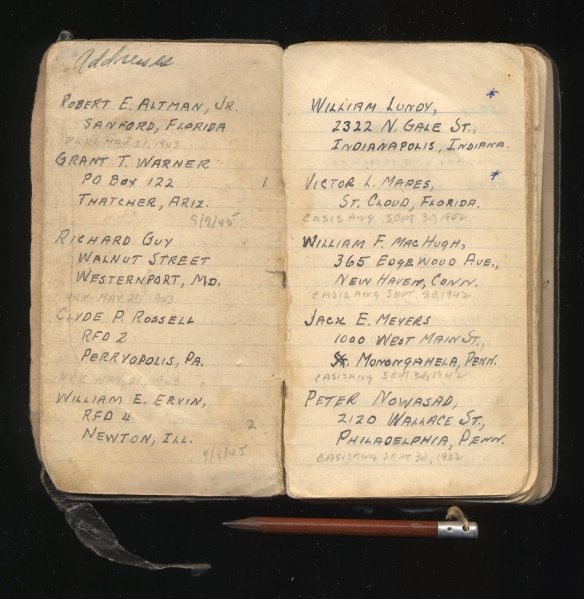 Addresses
ROBERT E. ALTMAN, JR.
SANFORD, FLORIDA
MAY 21, 1943
GRANT T. WARNER
PO BOX 122 1
THATCHER, ARIZ.
9/9/45
RICHARD GUY
WALNUT STREET
WESTERNPORT, MD.
MAY 21, 1943
CLYDE P. ROSSELL
RFD 2
PERRYOPOLIS, PA.
MAY 21, 1943
WILLIAM E. ERVIN,
RFD 4 2
NEWTON, ILL.
9/9/45
*
WILLIAM LUNDY,
2322 N. GALE ST.,
INDIANAPOLIS, INDIANA.
*
VICTOR L. MAPES,
ST. CLOUD, FLORIDA.
CASISANG SEPT 30, 1942
WILLIAM F. MACHUGH,
365 EDGEWOOD AVE.,
NEW HAVEN, CONN.
CASISANG SEPT. 30, 1942
JACK E. MEYERS
1000 WEST MAIN ST.,
MONONGAHELA, PENN.
CASISANG SEPT 30, 1942
PETER NOWASAD,
2120 WALLACE ST.,
PHILADELPHIA, PENN.
CASISANG SEPT 30, 1942